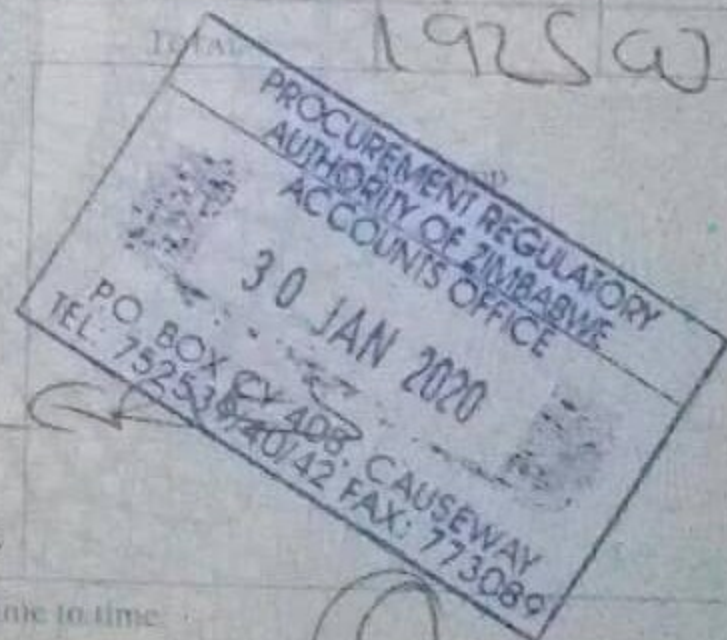 TOTAL 1925 00
PROCUREMENT REGULATORY
AUTHORITY OF ZIMBABWE
ACCOUNTS OFFICE
30 JAN 2020
P.O. BOX CY 408, CAUSEWAY
TEL: 752539/40/42 FAX: 773089
to time